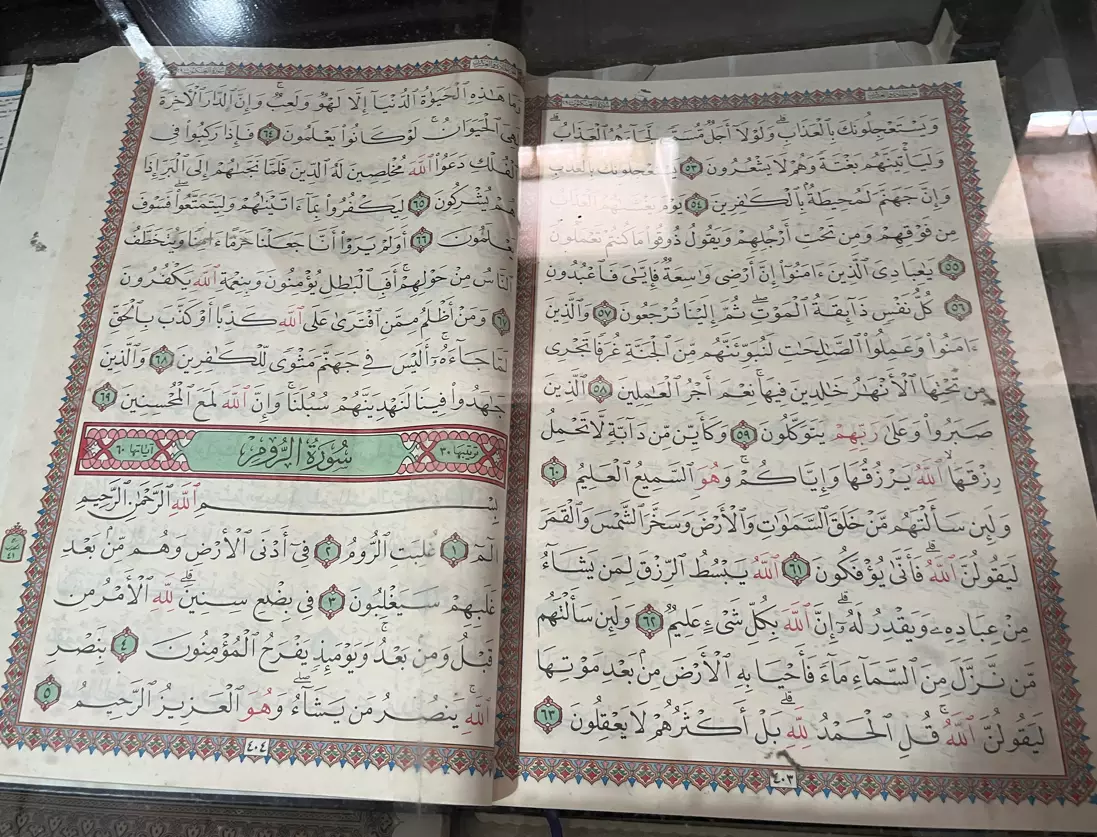 وَيَسْتَعْجِلُونَكَ بِالْعَذَابِ وَلَوْلَا أَجَلٌ مُّسَمًّى لَّجَاءَهُمُ الْعَذَابُ
وَلَيَأْتِيَنَّهُم بَغْتَةً وَهُمْ لَا يَشْعُرُونَ ٥٣ يَسْتَعْجِلُونَكَ بِالْعَذَابِ
وَإِنَّ جَهَنَّمَ لَمُحِيطَةٌ بِالْكَافِرِينَ ٥٤ يَوْمَ يَغْشَاهُمُ الْعَذَابُ
مِن فَوْقِهِمْ وَمِن تَحْتِ أَرْجُلِهِمْ وَيَقُولُ ذُوقُوا مَا كُنتُمْ تَعْمَلُونَ
٥٥ يَا عِبَادِيَ الَّذِينَ آمَنُوا إِنَّ أَرْضِي وَاسِعَةٌ فَإِيَّايَ فَاعْبُدُونِ
٥٦ كُلُّ نَفْسٍ ذَائِقَةُ الْمَوْتِ ثُمَّ إِلَيْنَا تُرْجَعُونَ ٥٧ وَالَّذِينَ
آمَنُوا وَعَمِلُوا الصَّالِحَاتِ لَنُبَوِّئَنَّهُم مِّنَ الْجَنَّةِ غُرَفًا تَجْرِي
مِن تَحْتِهَا الْأَنْهَارُ خَالِدِينَ فِيهَا نِعْمَ أَجْرُ الْعَامِلِينَ ٥٨ الَّذِينَ
صَبَرُوا وَعَلَىٰ رَبِّهِمْ يَتَوَكَّلُونَ ٥٩ وَكَأَيِّن مِّن دَابَّةٍ لَّا تَحْمِلُ
رِزْقَهَا اللَّهُ يَرْزُقُهَا وَإِيَّاكُمْ وَهُوَ السَّمِيعُ الْعَلِيمُ ٦٠
وَلَئِن سَأَلْتَهُم مَّنْ خَلَقَ السَّمَاوَاتِ وَالْأَرْضَ وَسَخَّرَ الشَّمْسَ وَالْقَمَرَ
لَيَقُولُنَّ اللَّهُ فَأَنَّىٰ يُؤْفَكُونَ ٦١ اللَّهُ يَبْسُطُ الرِّزْقَ لِمَن يَشَاءُ
مِنْ عِبَادِهِ وَيَقْدِرُ لَهُ إِنَّ اللَّهَ بِكُلِّ شَيْءٍ عَلِيمٌ ٦٢ وَلَئِن سَأَلْتَهُم
مَّن نَّزَّلَ مِنَ السَّمَاءِ مَاءً فَأَحْيَا بِهِ الْأَرْضَ مِن بَعْدِ مَوْتِهَا
لَيَقُولُنَّ اللَّهُ قُلِ الْحَمْدُ لِلَّهِ بَلْ أَكْثَرُهُمْ لَا يَعْقِلُونَ ٦٣
٤٠٣
وَمَا هَٰذِهِ الْحَيَاةُ الدُّنْيَا إِلَّا لَهْوٌ وَلَعِبٌ وَإِنَّ الدَّارَ الْآخِرَةَ
لَهِيَ الْحَيَوَانُ لَوْ كَانُوا يَعْلَمُونَ ٦٤ فَإِذَا رَكِبُوا فِي
الْفُلْكِ دَعَوُا اللَّهَ مُخْلِصِينَ لَهُ الدِّينَ فَلَمَّا نَجَّاهُمْ إِلَى الْبَرِّ إِذَا
هُمْ يُشْرِكُونَ ٦٥ لِيَكْفُرُوا بِمَا آتَيْنَاهُمْ وَلِيَتَمَتَّعُوا فَسَوْفَ
يَعْلَمُونَ ٦٦ أَوَلَمْ يَرَوْا أَنَّا جَعَلْنَا حَرَمًا آمِنًا وَيُتَخَطَّفُ
النَّاسُ مِنْ حَوْلِهِمْ أَفَبِالْبَاطِلِ يُؤْمِنُونَ وَبِنِعْمَةِ اللَّهِ يَكْفُرُونَ
٦٧ وَمَنْ أَظْلَمُ مِمَّنِ افْتَرَىٰ عَلَى اللَّهِ كَذِبًا أَوْ كَذَّبَ بِالْحَقِّ
لَمَّا جَاءَهُ أَلَيْسَ فِي جَهَنَّمَ مَثْوًى لِّلْكَافِرِينَ ٦٨ وَالَّذِينَ
جَاهَدُوا فِينَا لَنَهْدِيَنَّهُمْ سُبُلَنَا وَإِنَّ اللَّهَ لَمَعَ الْمُحْسِنِينَ ٦٩
ترتيبها ٣٠ سُورَةُ الرُّومِ آياتها ٦٠
بِسْمِ اللَّهِ الرَّحْمَٰنِ الرَّحِيمِ
الم ١ غُلِبَتِ الرُّومُ ٢ فِي أَدْنَى الْأَرْضِ وَهُم مِّن بَعْدِ
غَلَبِهِمْ سَيَغْلِبُونَ ٣ فِي بِضْعِ سِنِينَ لِلَّهِ الْأَمْرُ مِن
قَبْلُ وَمِن بَعْدُ وَيَوْمَئِذٍ يَفْرَحُ الْمُؤْمِنُونَ ٤ بِنَصْرِ
اللَّهِ يَنصُرُ مَن يَشَاءُ وَهُوَ الْعَزِيزُ الرَّحِيمُ ٥
٤٠٤